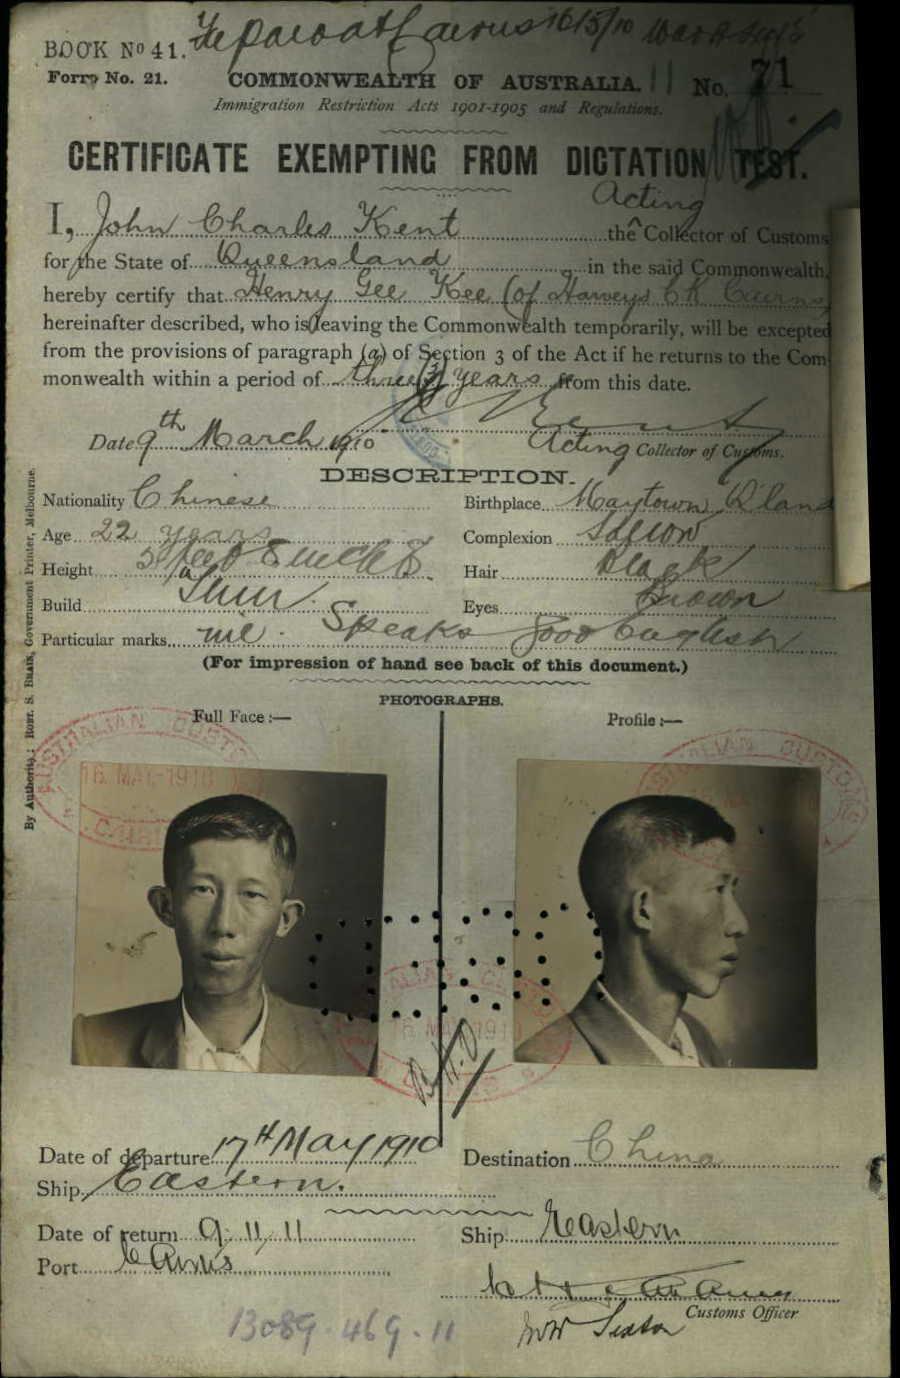 BOOK No 41.
Form No. 21.
COMMONWEALTH OF AUSTRALIA.
No. 71
Immigration Restriction Acts 1901-1905 and Regulations.
CERTIFICATE EXEMPTING FROM DICTATION TEST.
Acting
I, John Charles Kent the Collector of Customs
for the State of Queensland in the said Commonwealth,
hereby certify that Henry Gee Kee (of Harveys Ck Cairns)
hereinafter described, who is leaving the Commonwealth temporarily, will be excepted
from the provisions of paragraph (a) of Section 3 of the Act if he returns to the Com-
monwealth within a period of three (3) years from this date.
Date 9th March 1910 Acting Collector of Customs.
DESCRIPTION.
Nationality Chinese Birthplace Maytown Q'land
Age 22 years Complexion Sallow
Height 5 feet 8 inches Hair Black
Build Thin Eyes Brown
Particular marks nil. Speaks good English
(For impression of hand see back of this document.)
PHOTOGRAPHS.
Full Face:— Profile:—
By Authority: Robt. S. Brain, Government Printer, Melbourne.
AUSTRALIAN CUSTOMS
16 MAY 1910
CAIRNS
Date of departure 17th May 1910 Destination China
Ship Eastern.
Date of return 9.11.11 Ship Eastern
Port Cairns
Customs Officer
13089.469.11